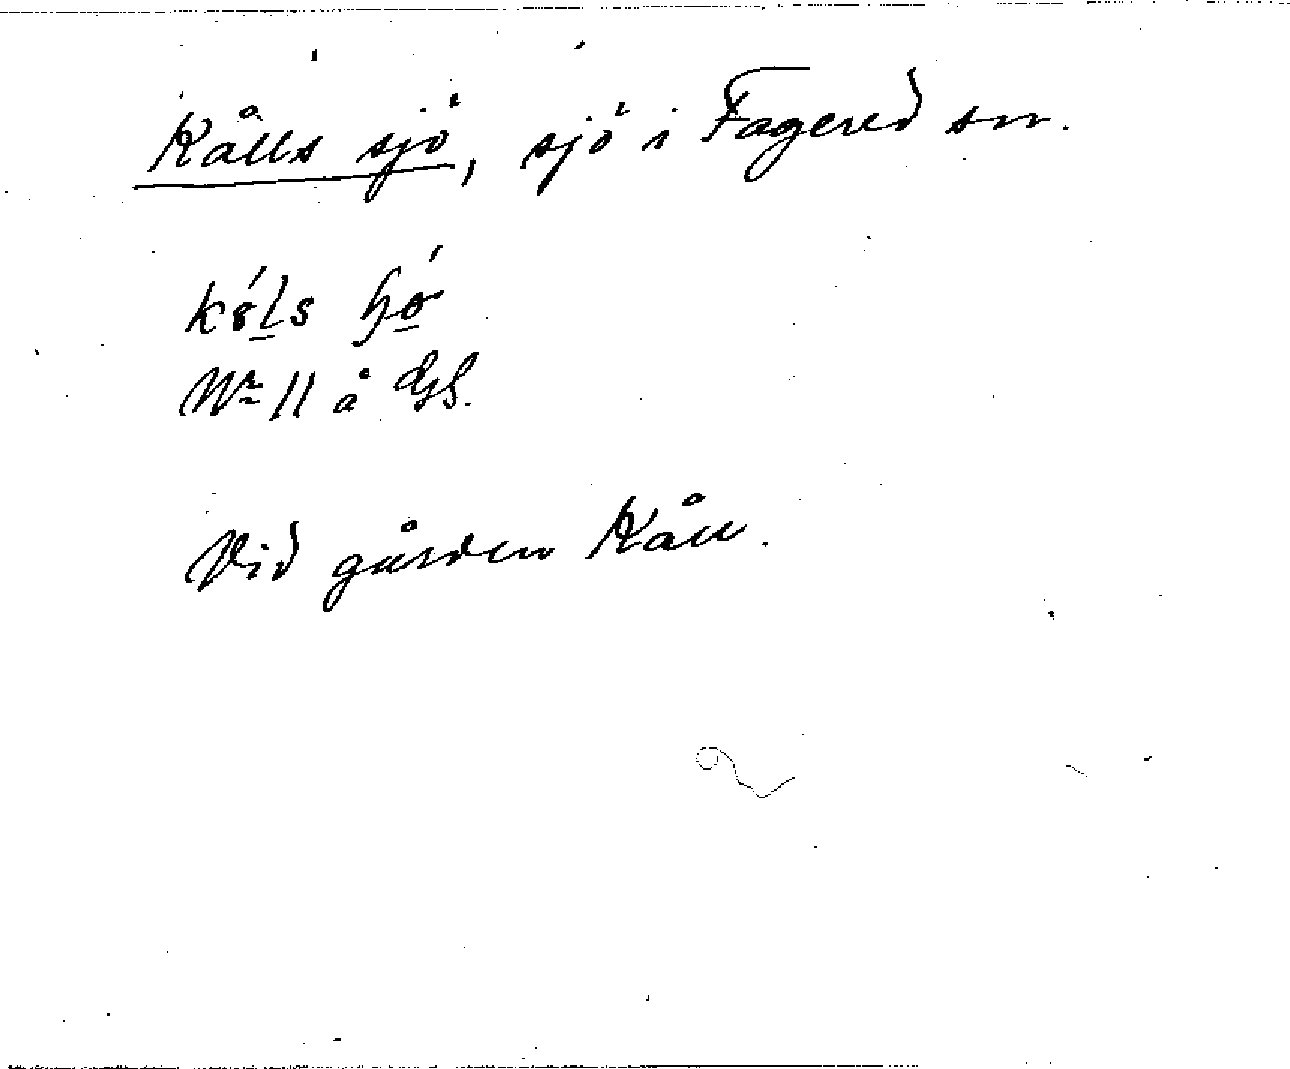 Kålls sjö, sjö i Fagered sn.
Nr 11 å GS.
Vid gården Kåll.